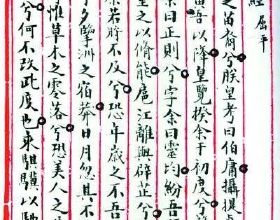 經 屈平
之苗裔兮朕皇考曰伯庸攝提
寅吾以降皇覽揆余于初度兮
余曰正則兮字余曰靈均紛吾
重之以脩能扈江離與辟芷兮
余若將不及兮恐年歲之不吾
兮夕擥洲之宿莽日月忽其不
惟草木之零落兮恐美人之
兮何不改此度也乘騏驥以馳